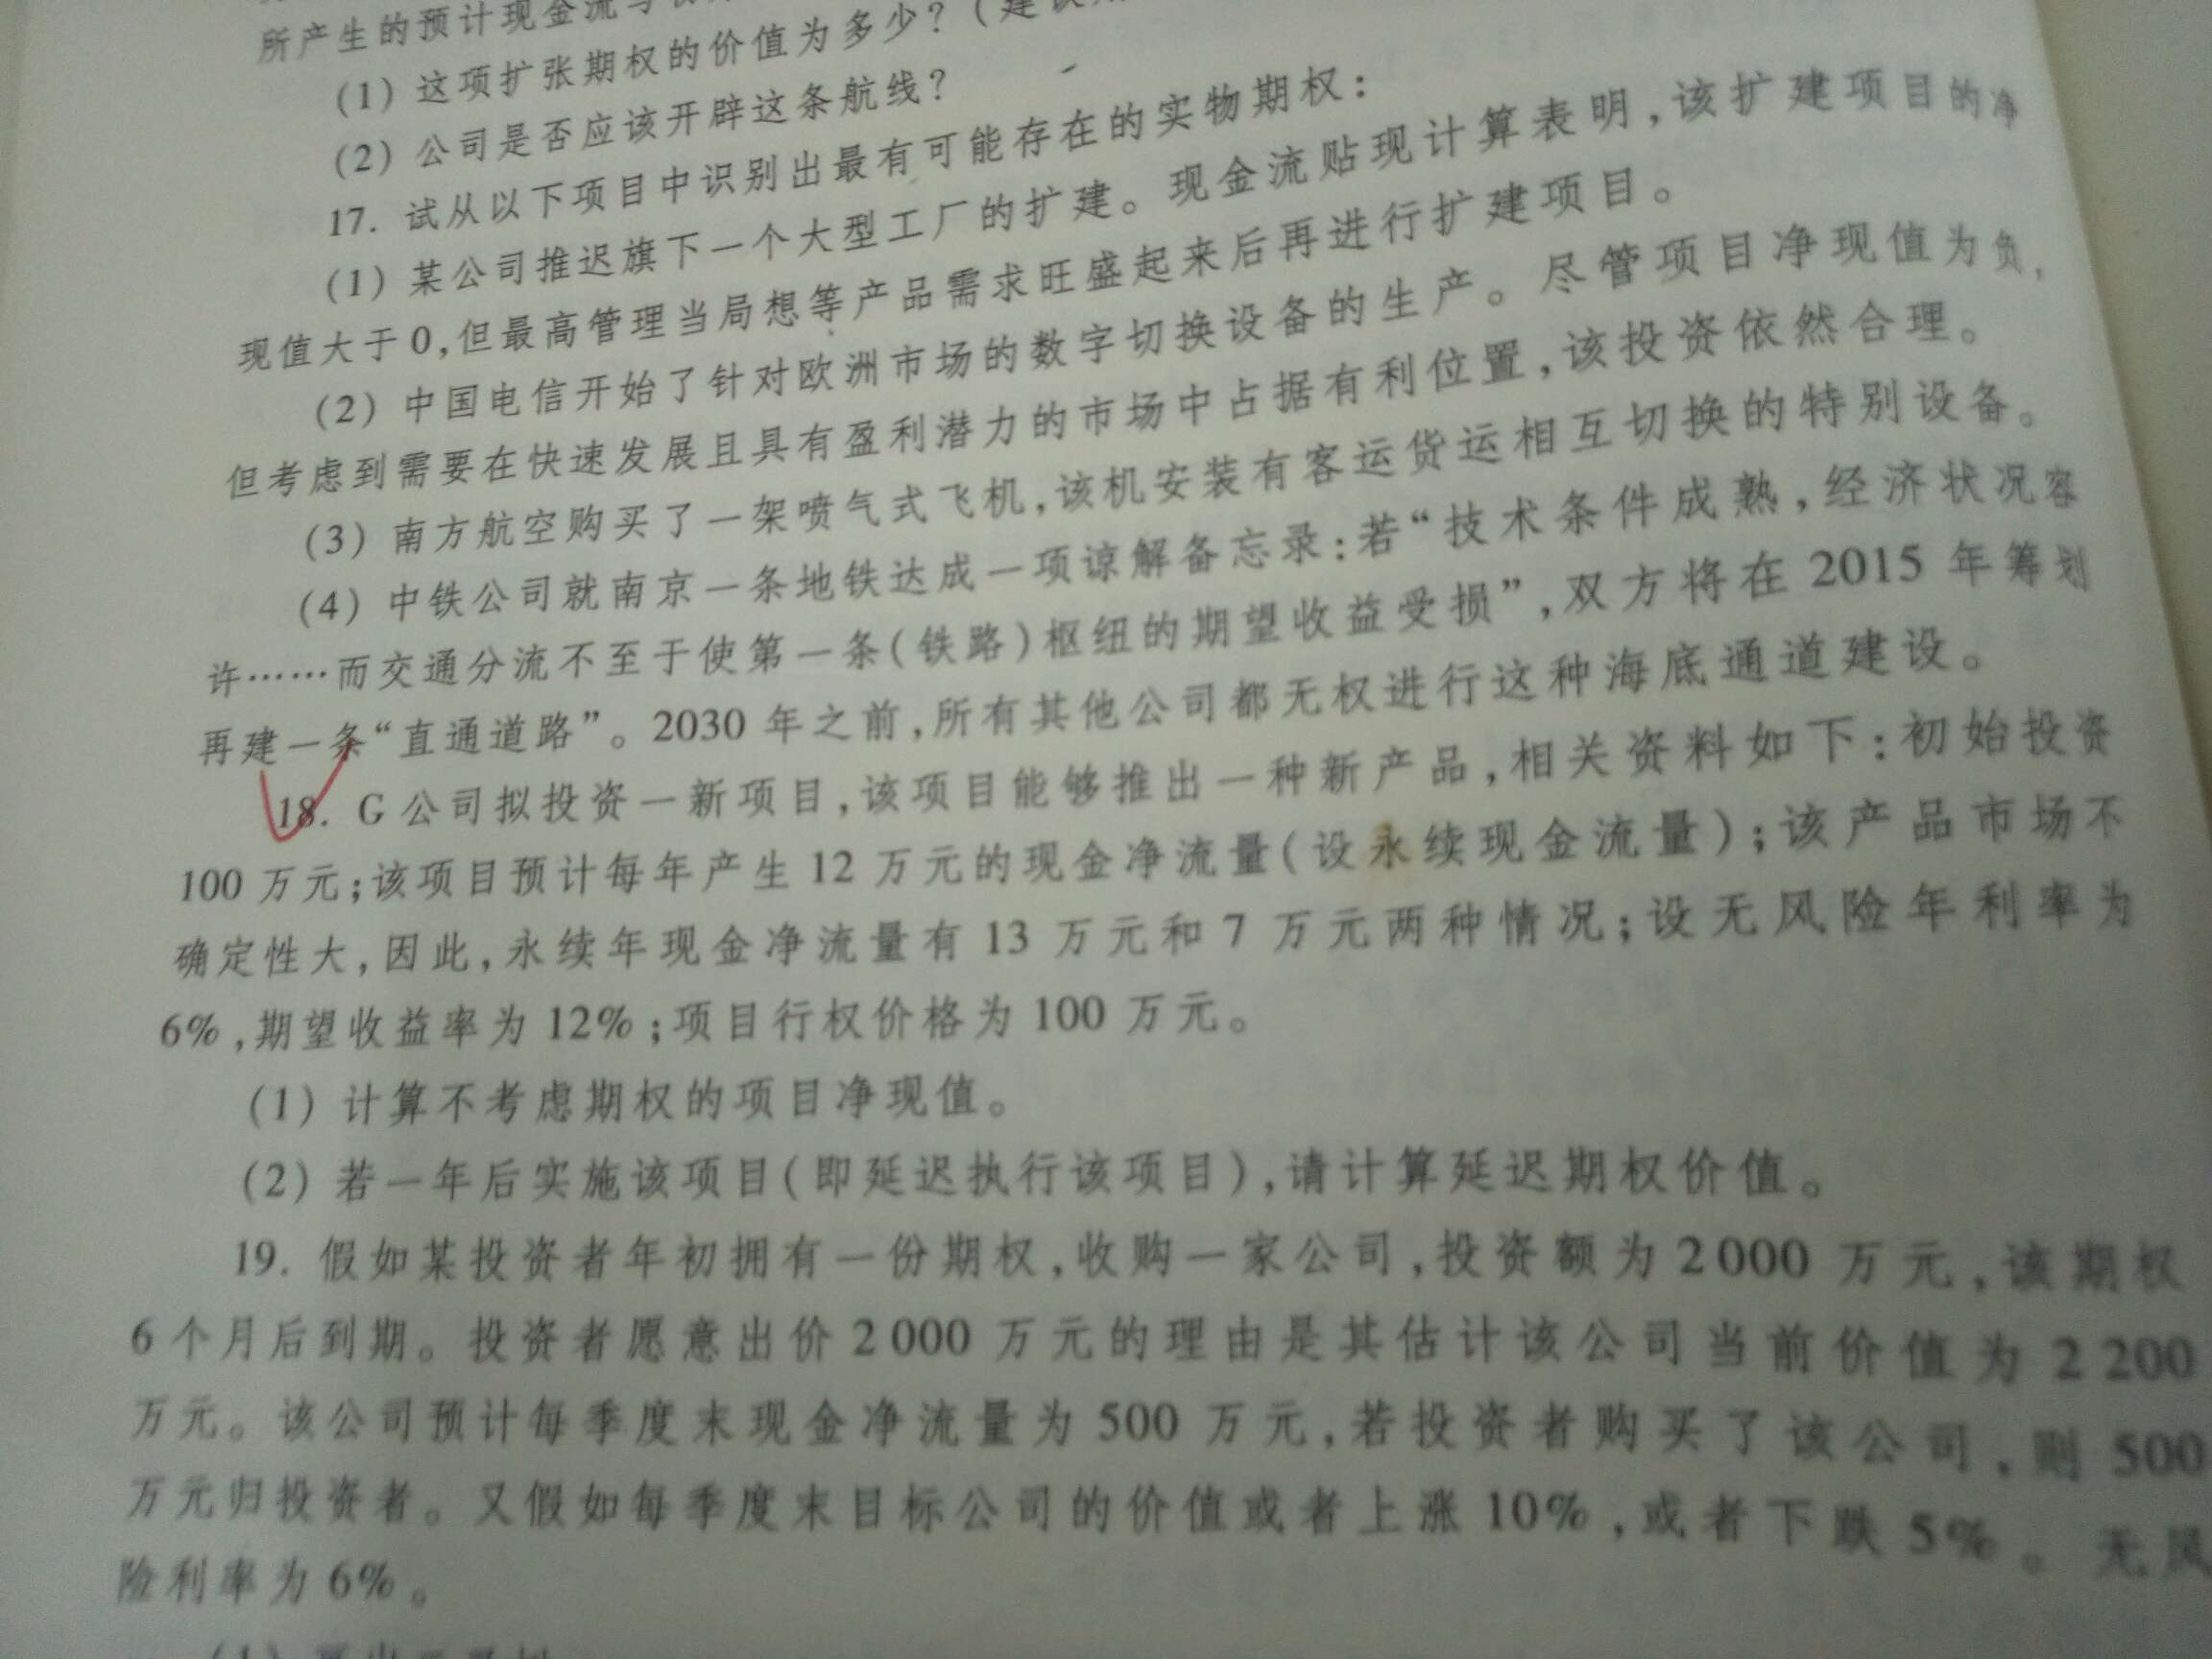 所产生的预计现金流与
(1) 这项扩张期权的价值为多少？(建议
(2) 公司是否应该开辟这条航线？
17. 试从以下项目中识别出最有可能存在的实物期权：
(1) 某公司推迟旗下一个大型工厂的扩建。现金流贴现计算表明，该扩建项目的净
现值大于0,但最高管理当局想等产品需求旺盛起来后再进行扩建项目。
(2) 中国电信开始了针对欧洲市场的数字切换设备的生产。尽管项目净现值为负，
但考虑到需要在快速发展且具有盈利潜力的市场中占据有利位置，该投资依然合理。
(3) 南方航空购买了一架喷气式飞机，该机安装有客运货运相互切换的特别设备。
(4) 中铁公司就南京一条地铁达成一项谅解备忘录：若“技术条件成熟，经济状况容
许……而交通分流不至于使第一条(铁路)枢纽的期望收益受损”，双方将在 2015 年筹划
再建一条“直通道路”。2030 年之前，所有其他公司都无权进行这种海底通道建设。
18. G 公司拟投资一新项目，该项目能够推出一种新产品，相关资料如下：初始投资
100 万元；该项目预计每年产生 12 万元的现金净流量(设永续现金流量)；该产品市场不
确定性大，因此，永续年现金净流量有 13 万元和 7 万元两种情况；设无风险年利率为
6%，期望收益率为 12%；项目行权价格为 100 万元。
(1) 计算不考虑期权的项目净现值。
(2) 若一年后实施该项目(即延迟执行该项目)，请计算延迟期权价值。
19. 假如某投资者年初拥有一份期权，收购一家公司，投资额为 2 000 万元，该期权
6 个月后到期。投资者愿意出价 2 000 万元的理由是其估计该公司当前价值为 2 200
万元。该公司预计每季度末现金净流量为 500 万元，若投资者购买了该公司，则 500
万元归投资者。又假如每季度末目标公司的价值或者上涨 10%，或者下跌 5%。无风
险利率为 6%。